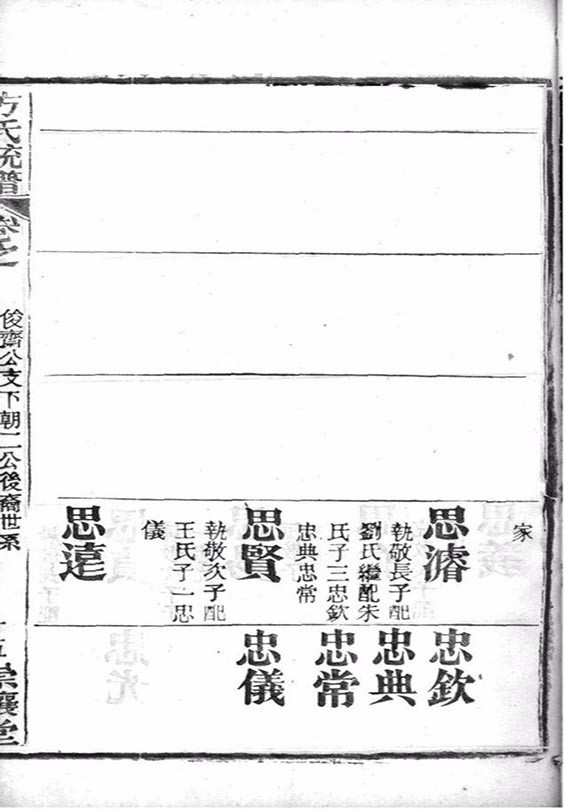 家
思濬
執敬長子配
劉氏繼配朱
氏子三忠欽
忠典忠常
思賢
執敬次子配
王氏子一忠
儀
思達
忠欽
忠典
忠常
忠儀
方氏統譜
卷之
俊齊公支下朝二公後裔世系
崇讓堂